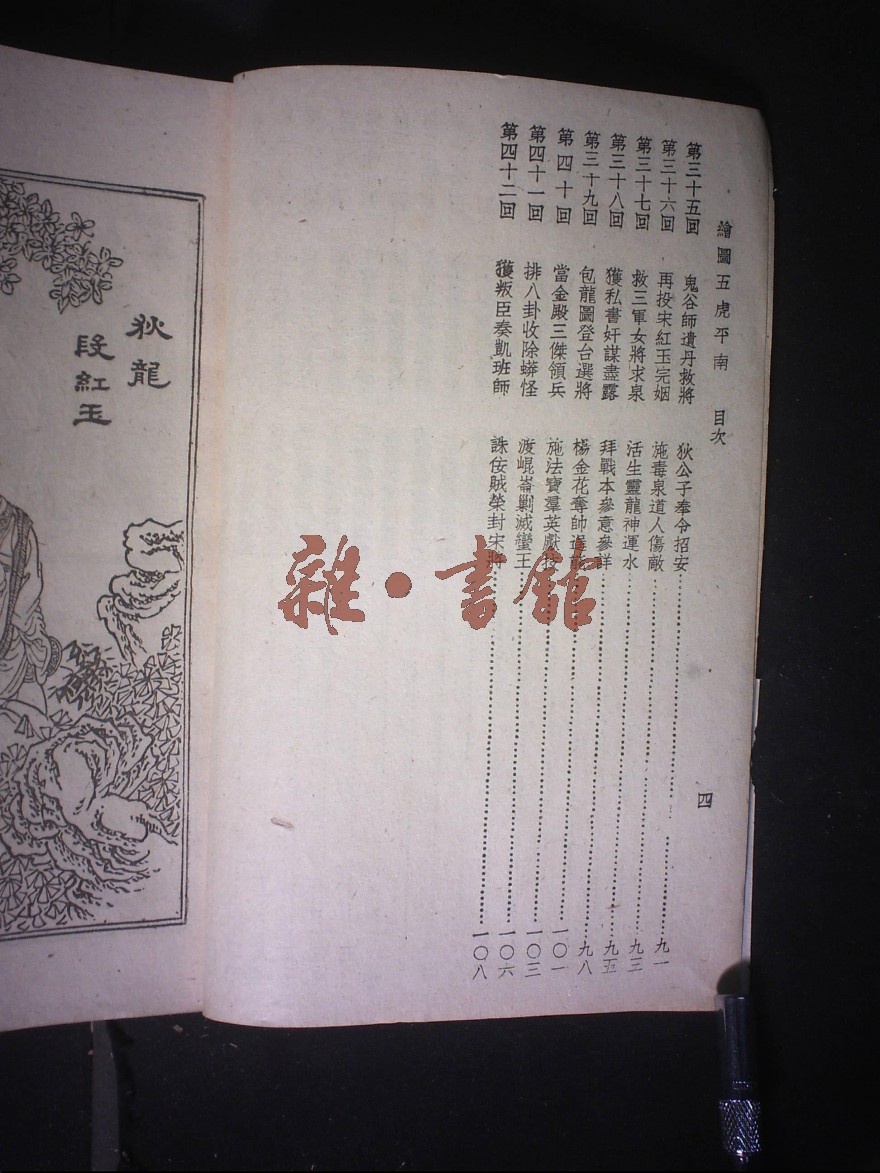 繪圖五虎平南 目次 四
第三十五回 鬼谷師遺丹救將 狄公子奉令招安 九一
第三十六回 再投宋紅玉完姻 施毒泉道人傷敵 九三
第三十七回 救三軍女將求泉 活生靈龍神運水 九五
第三十八回 獲私書奸謀盡露 拜戰本參意參詳 九八
第三十九回 包龍圖登台選將 楊金花奪帥 一〇一
第四十回 當金殿三傑領兵 施法寶羣英獻技 一〇三
第四十一回 排八卦收除蟒怪 渡崐崙剿滅蠻王 一〇六
第四十二回 獲叛臣奏凱班師 誅佞賊榮封宋將 一〇八
狄龍
段紅玉
雜·書館